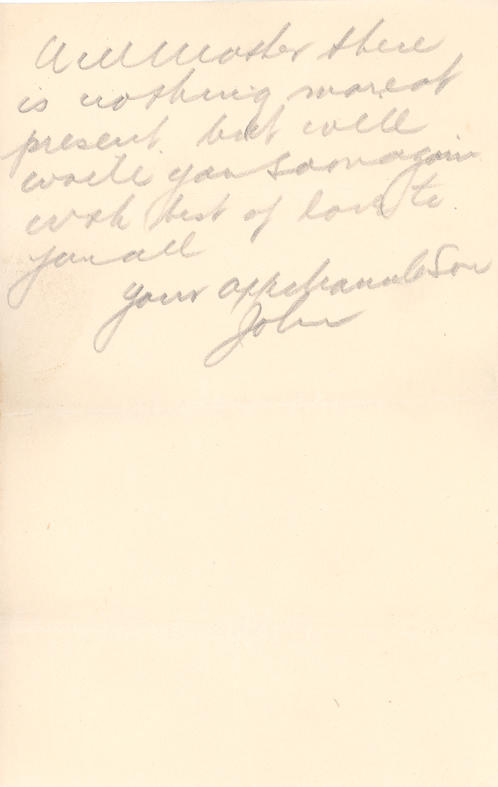 Well Mother there
is nothing more at
present but will
write you soon again
with best of love to
you all
Your affectionate Son
John